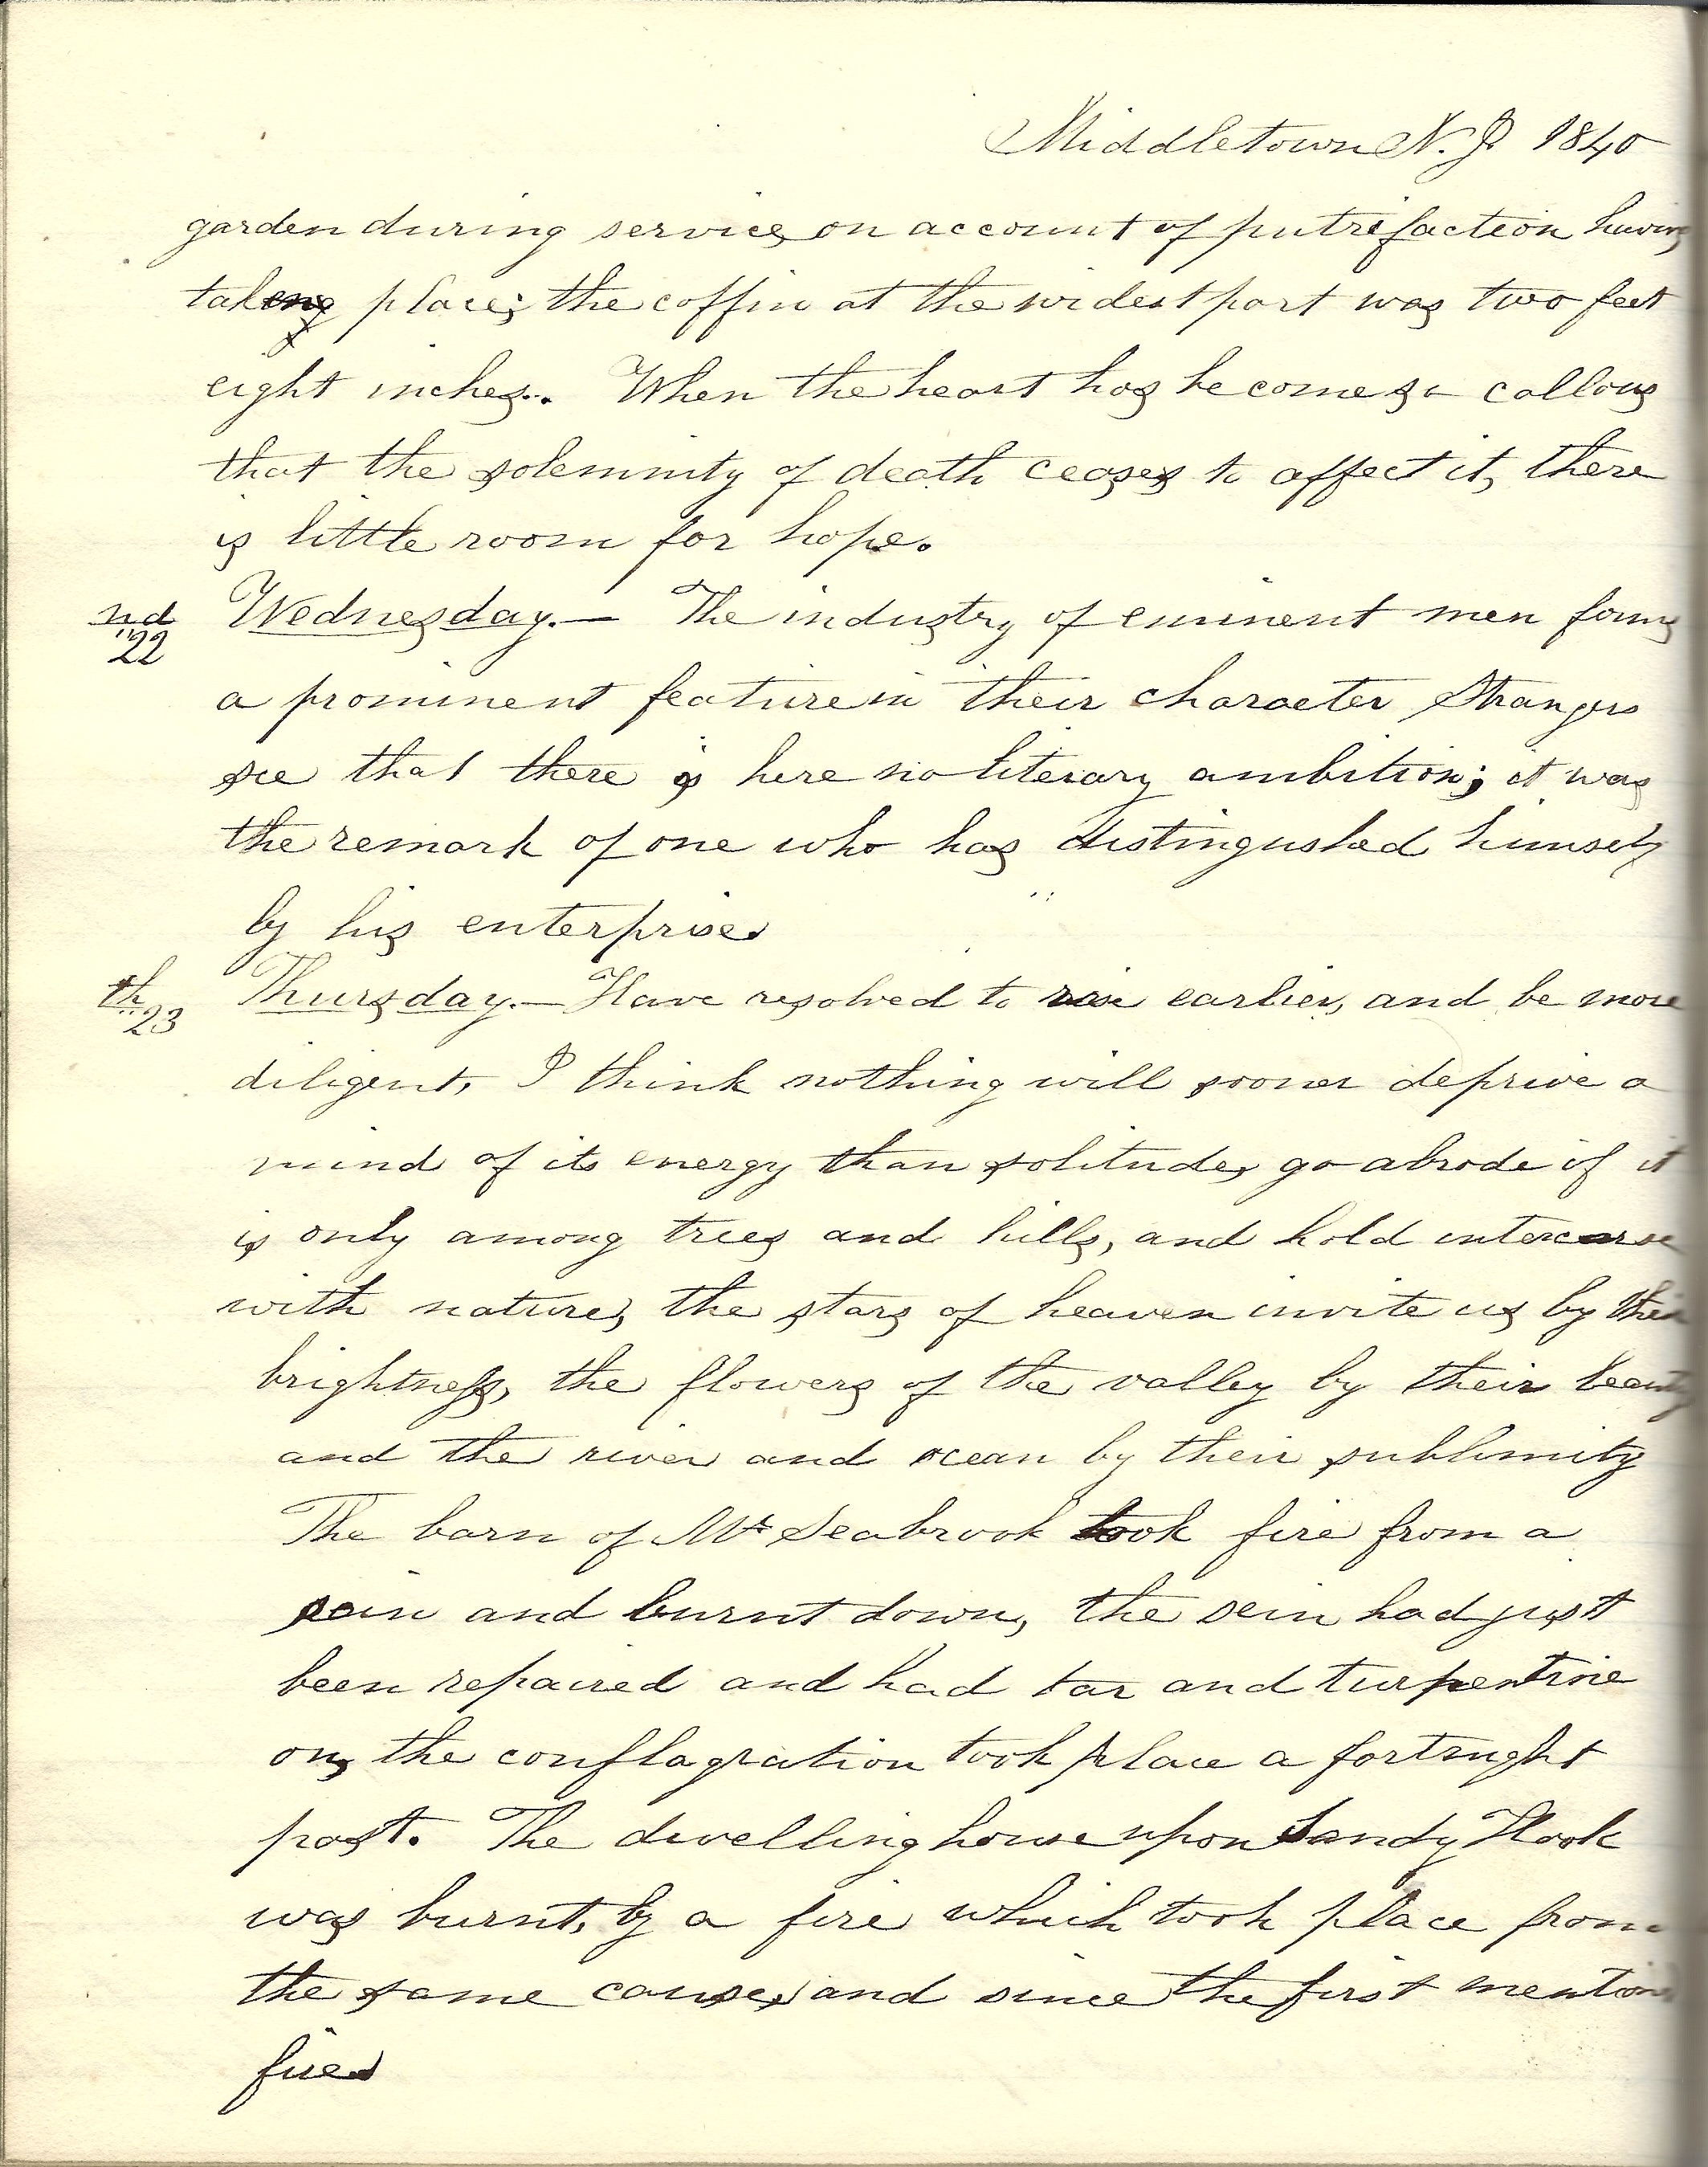 Middletown N. J. 1840
garden during service, on account of putrifaction having
taken place; the coffin at the widest part was two feet
eight inches... When the heart has become so callous
that the solemnity of death ceases to affect it, there
is little room for hope.
nd 22 Wednesday.— The industry of eminent men forms
a prominent feature in their character Strangers
see that there is here no literary ambition; it was
the remark of one who has distingushed himself
by his enterprise.
th 23 Thursday.— Have resolved to rise earlier, and be more
diligent, I think nothing will sooner deprive a
mind of its energy than solitude, go abrode if it
is only among trees and hills, and hold intercourse
with nature, the stars of heaven invite us by their
brightness, the flowers of the valley by their beauty
and the river and ocean by their sublimity
The barn of Mr Seabrook took fire from a
sein and burnt down, the sein had just
been repaired and had tar and turpentine
on, the conflagration took place a fortnight
past. The dwelling house upon Sandy Hook
was burnt, by a fire which took place from
the same cause, and since the first mention
fire.